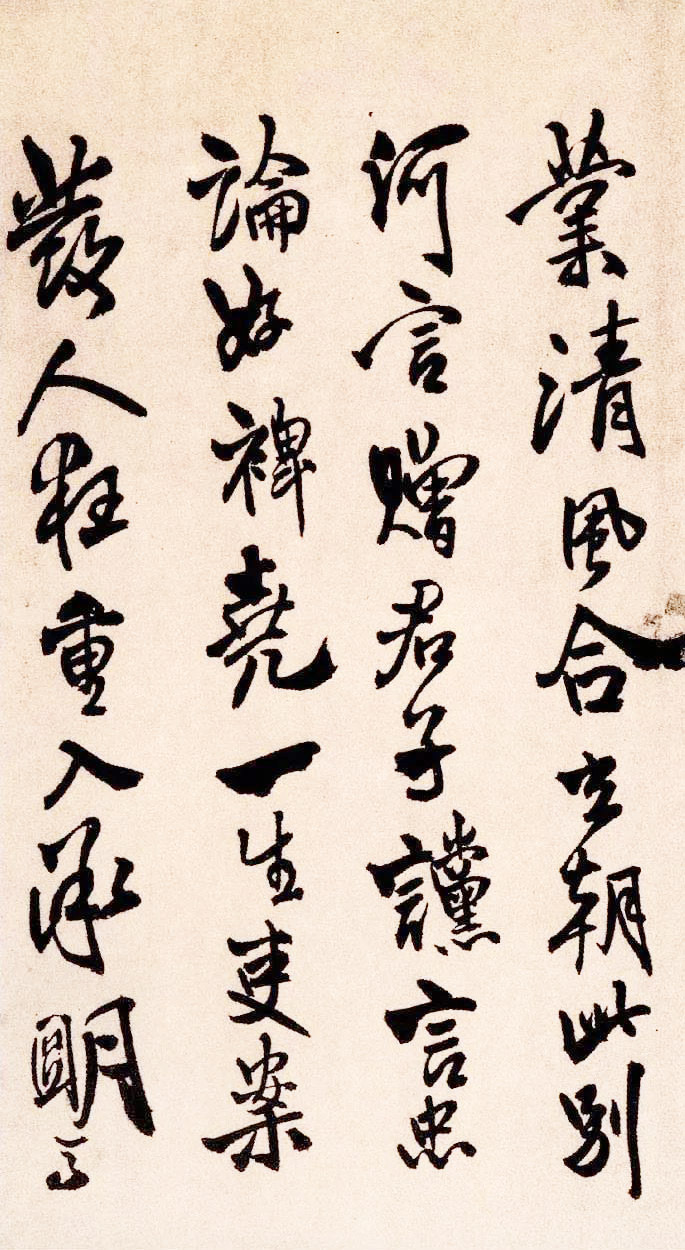 業清風合立朝此別
何言贈君子讜言忠
論好裨堯一生吏案
發人狂重入承明